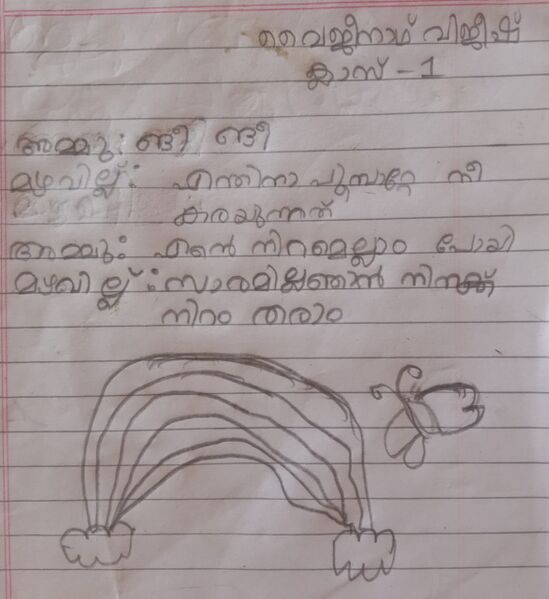 വൈജീനാഥ് വിജീഷ്
ക്ലാസ് - 1
അമ്മു: ങീ ങീ
മഴവില്ല്: എന്തിനാ പൂമ്പാറ്റേ നീ
കരയുന്നത്
അമ്മു: എൻെ നിറമെല്ലാം പോയി
മഴവില്ല്: സാരമില്ലഞാൻ നിനക്ക്
നിറം തരാം